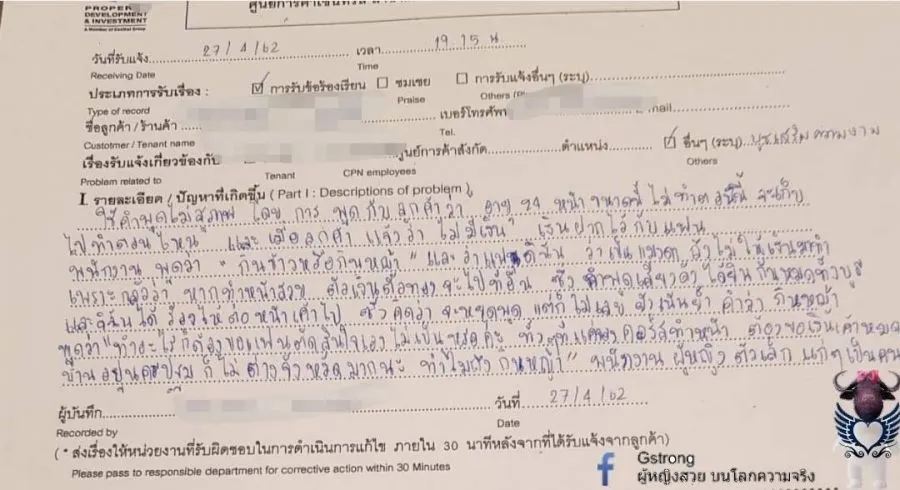 PROPER
DEVELOPMENT
& INVESTMENT
A Member of Central Group
วันที่รับแจ้ง 27/4/62 เวลา 19.15 น
Receiving Date Time
ประเภทการรับเรื่อง: ☑ การรับข้อร้องเรียน ☐ ชมเชย ☐ การรับแจ้งอื่นๆ (ระบุ)
Type of record Praise Others
ชื่อลูกค้า / ร้านค้า เบอร์โทรศัพท
Custotmer / Tenant name Tel. mail
เรื่องรับแจ้งเกี่ยวข้องกับ ศูนย์การค้าสังกัด ตำแหน่ง ☑ อื่นๆ (ระบุ) ความงาม
Problem related to Tenant CPN employees Others
I. รายละเอียด / ปัญหาที่เกิดขึ้น (Part I : Descriptions of problem)
ใช้คำพูดไม่สุภาพ โดย การ พูดกับลูกค้าว่า อายุ 24 หน้าขนาดนี้ ไม่ทำตอนนี้ จะเก็บ
ไปทำตอนไหน และเมื่อลูกค้า แจ้งว่า ไม่มีเงิน เงินฝากไว้กับแฟน
พนักงาน พูดว่า "กินข้าวหรือกินหญ้า" และว่าแฟนดิฉัน ว่าเป็นแมงดา ถึงไม่ให้เงินมาทำ
เพราะกลัวว่า หากทำหน้าสวย ตัวเงินตัวทองจะไปที่อื่น ซึ่ง คำพูดเสียงดัง ได้ยินกันหมดทั้งบูธ
และดิฉันได้ร้องไห้ต่อหน้าเค้าไป ซึ่งคิดว่าจะหยุดพูด แต่ก็ไม่เลย ยังเน้นย้ำ คำว่า กินหญ้า
พูดว่า "ทำอะไรก็ต้องขอแฟน ตัดสินใจเองไม่เป็นหรอคะ ทั้งที่แค่จองคอร์สทำหน้า ต้องขอเงินเค้าหมด
บ้านอยู่นครปฐม ก็ไม่ต่างจังหวัดมากนะ ทำไมถึงกินหญ้า" พนักงาน ผู้หญิง ตัวเล็ก แก่ๆ เป็นคน
ผู้บันทึก วันที่ 27/4/62
Recorded by Date
( * ส่งเรื่องให้หน่วยงานที่รับผิดชอบในการดำเนินการแก้ไข ภายใน 30 นาทีหลังจากที่ได้รับแจ้งจากลูกค้า)
Please pass to responsible department for corrective action within 30 Minutes
Gstrong
ผู้หญิงสวย บนโลกความจริง